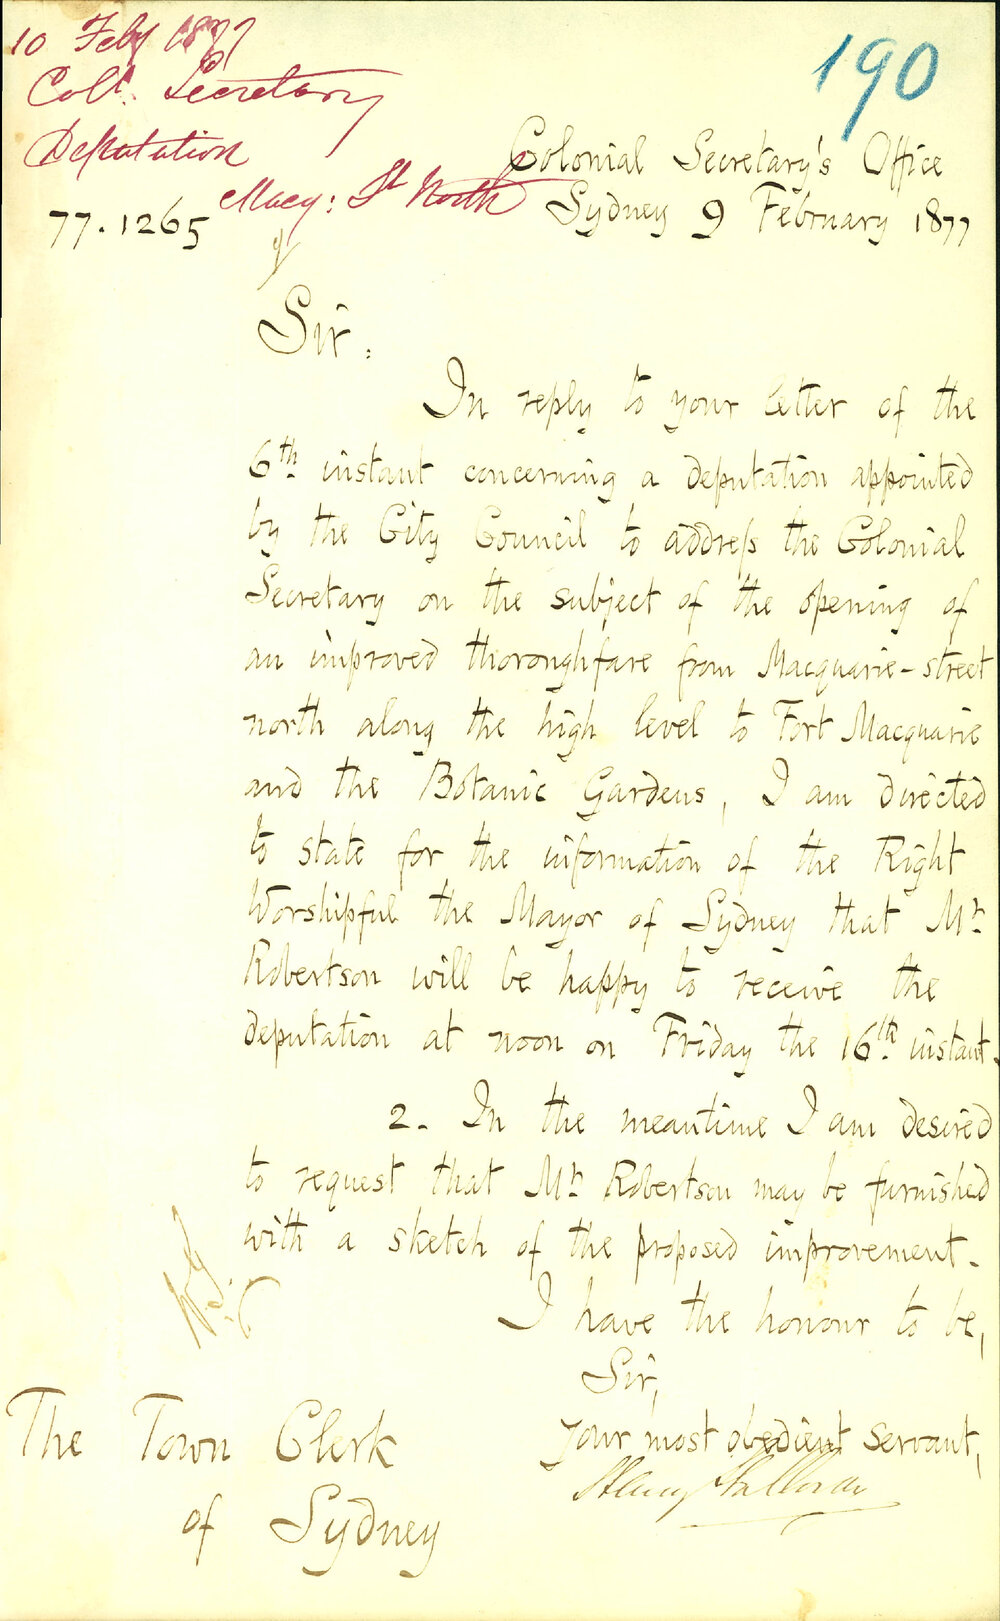 10 Feby 1877
Coll. Secretary
Deputation
Macq: St North
190
Colonial Secretary's Office
Sydney 9 February 1877
77.1265
Sir.
In reply to your letter of the
6th. instant concerning a deputation appointed
by the City Council to address the Colonial
Secretary on the subject of the opening of
an improved thoroughfare from Macquarie-street
north along the high level to Fort Macquarie
and the Botanic Gardens, I am directed
to state for the information of the Right
Worshipful the Mayor of Sydney that Mr
Robertson will be happy to receive the
deputation at noon on Friday the 16th. instant.
2. In the meantime I am desired
to request that Mr Robertson may be furnished
with a sketch of the proposed improvement.
I have the honour to be,
Sir,
Your most obedient servant,
Henry Halloran
The Town Clerk
of Sydney